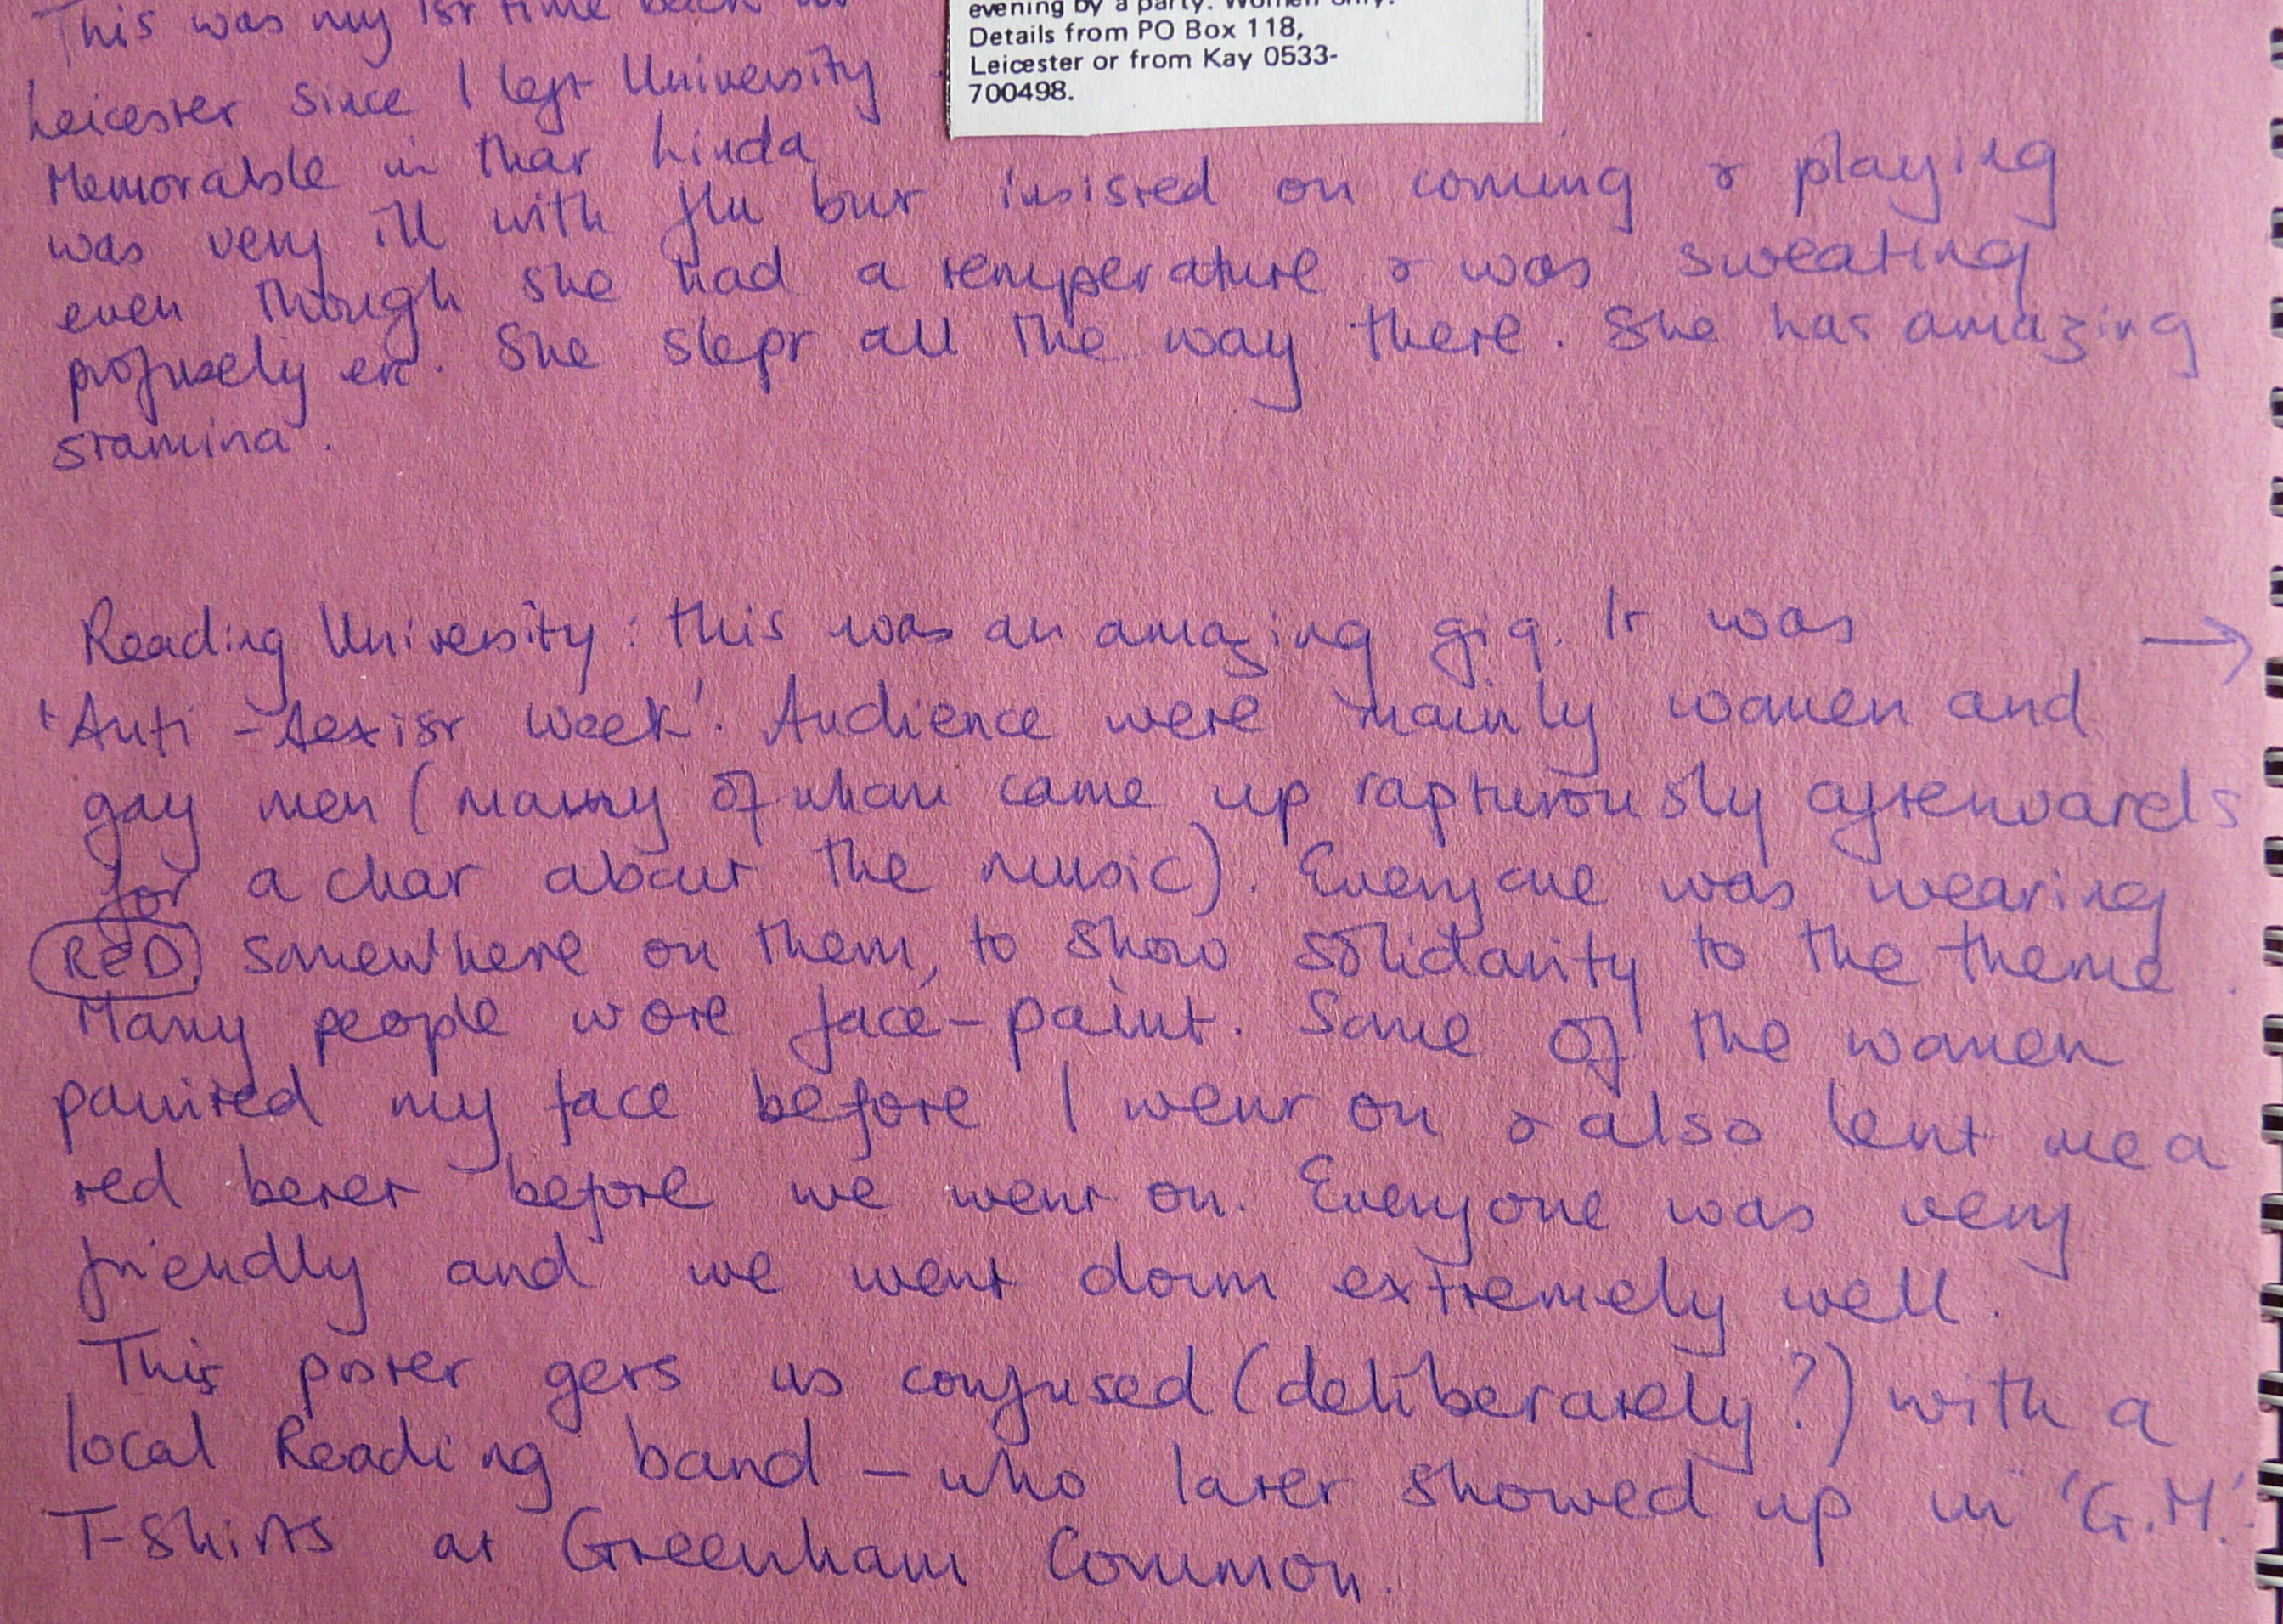 evening by a party. Women only.
Details from PO Box 118,
Leicester or from Kay 0533-
700498.
This was my 1st time back in
Leicester since I left University
Memorable in that Linda
was very ill with flu but insisted on coming & playing
even though she had a temperature & was sweating
profusely etc. She slept all the way there. She has amazing
stamina.
Reading University: this was an amazing gig. It was →
'Anti-Sexist Week'. Audience were mainly women and
gay men (many of whom came up rapturously afterwards
for a chat about the music). Everyone was wearing
RED somewhere on them, to show solidarity to the theme.
Many people wore face-paint. Some of the women
painted my face before I went on & also lent me a
red beret before we went on. Everyone was very
friendly and we went down extremely well.
This poster gets us confused (deliberately?) with a
local Reading band – who later showed up in 'G.M.'
T-Shirts at Greenham Common.